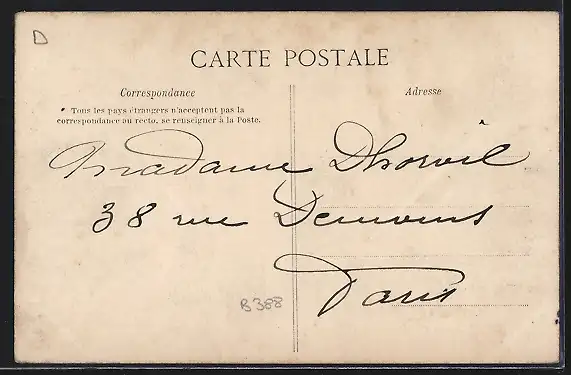 D
CARTE POSTALE
Correspondance
Adresse
* Tous les pays étrangers n'acceptent pas la
correspondance au recto, se renseigner à la Poste.
Madame Dhorvil
38 rue Demours
Paris
B388